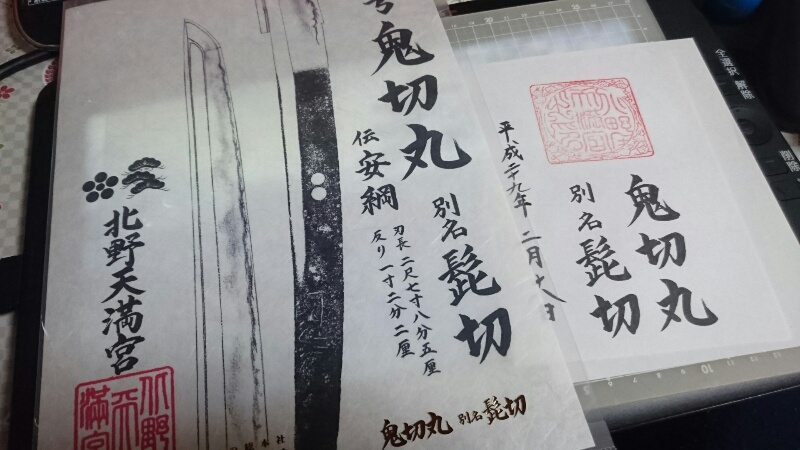 号 鬼切丸
別名 髭切
伝 安綱
刃長 二尺七寸八分五厘
反り 一寸二分二厘
北野天満宮
鬼切丸 別名 髭切
鬼切丸
別名 髭切
平成二十九年 二月十八日
全選択 解除
削除
10